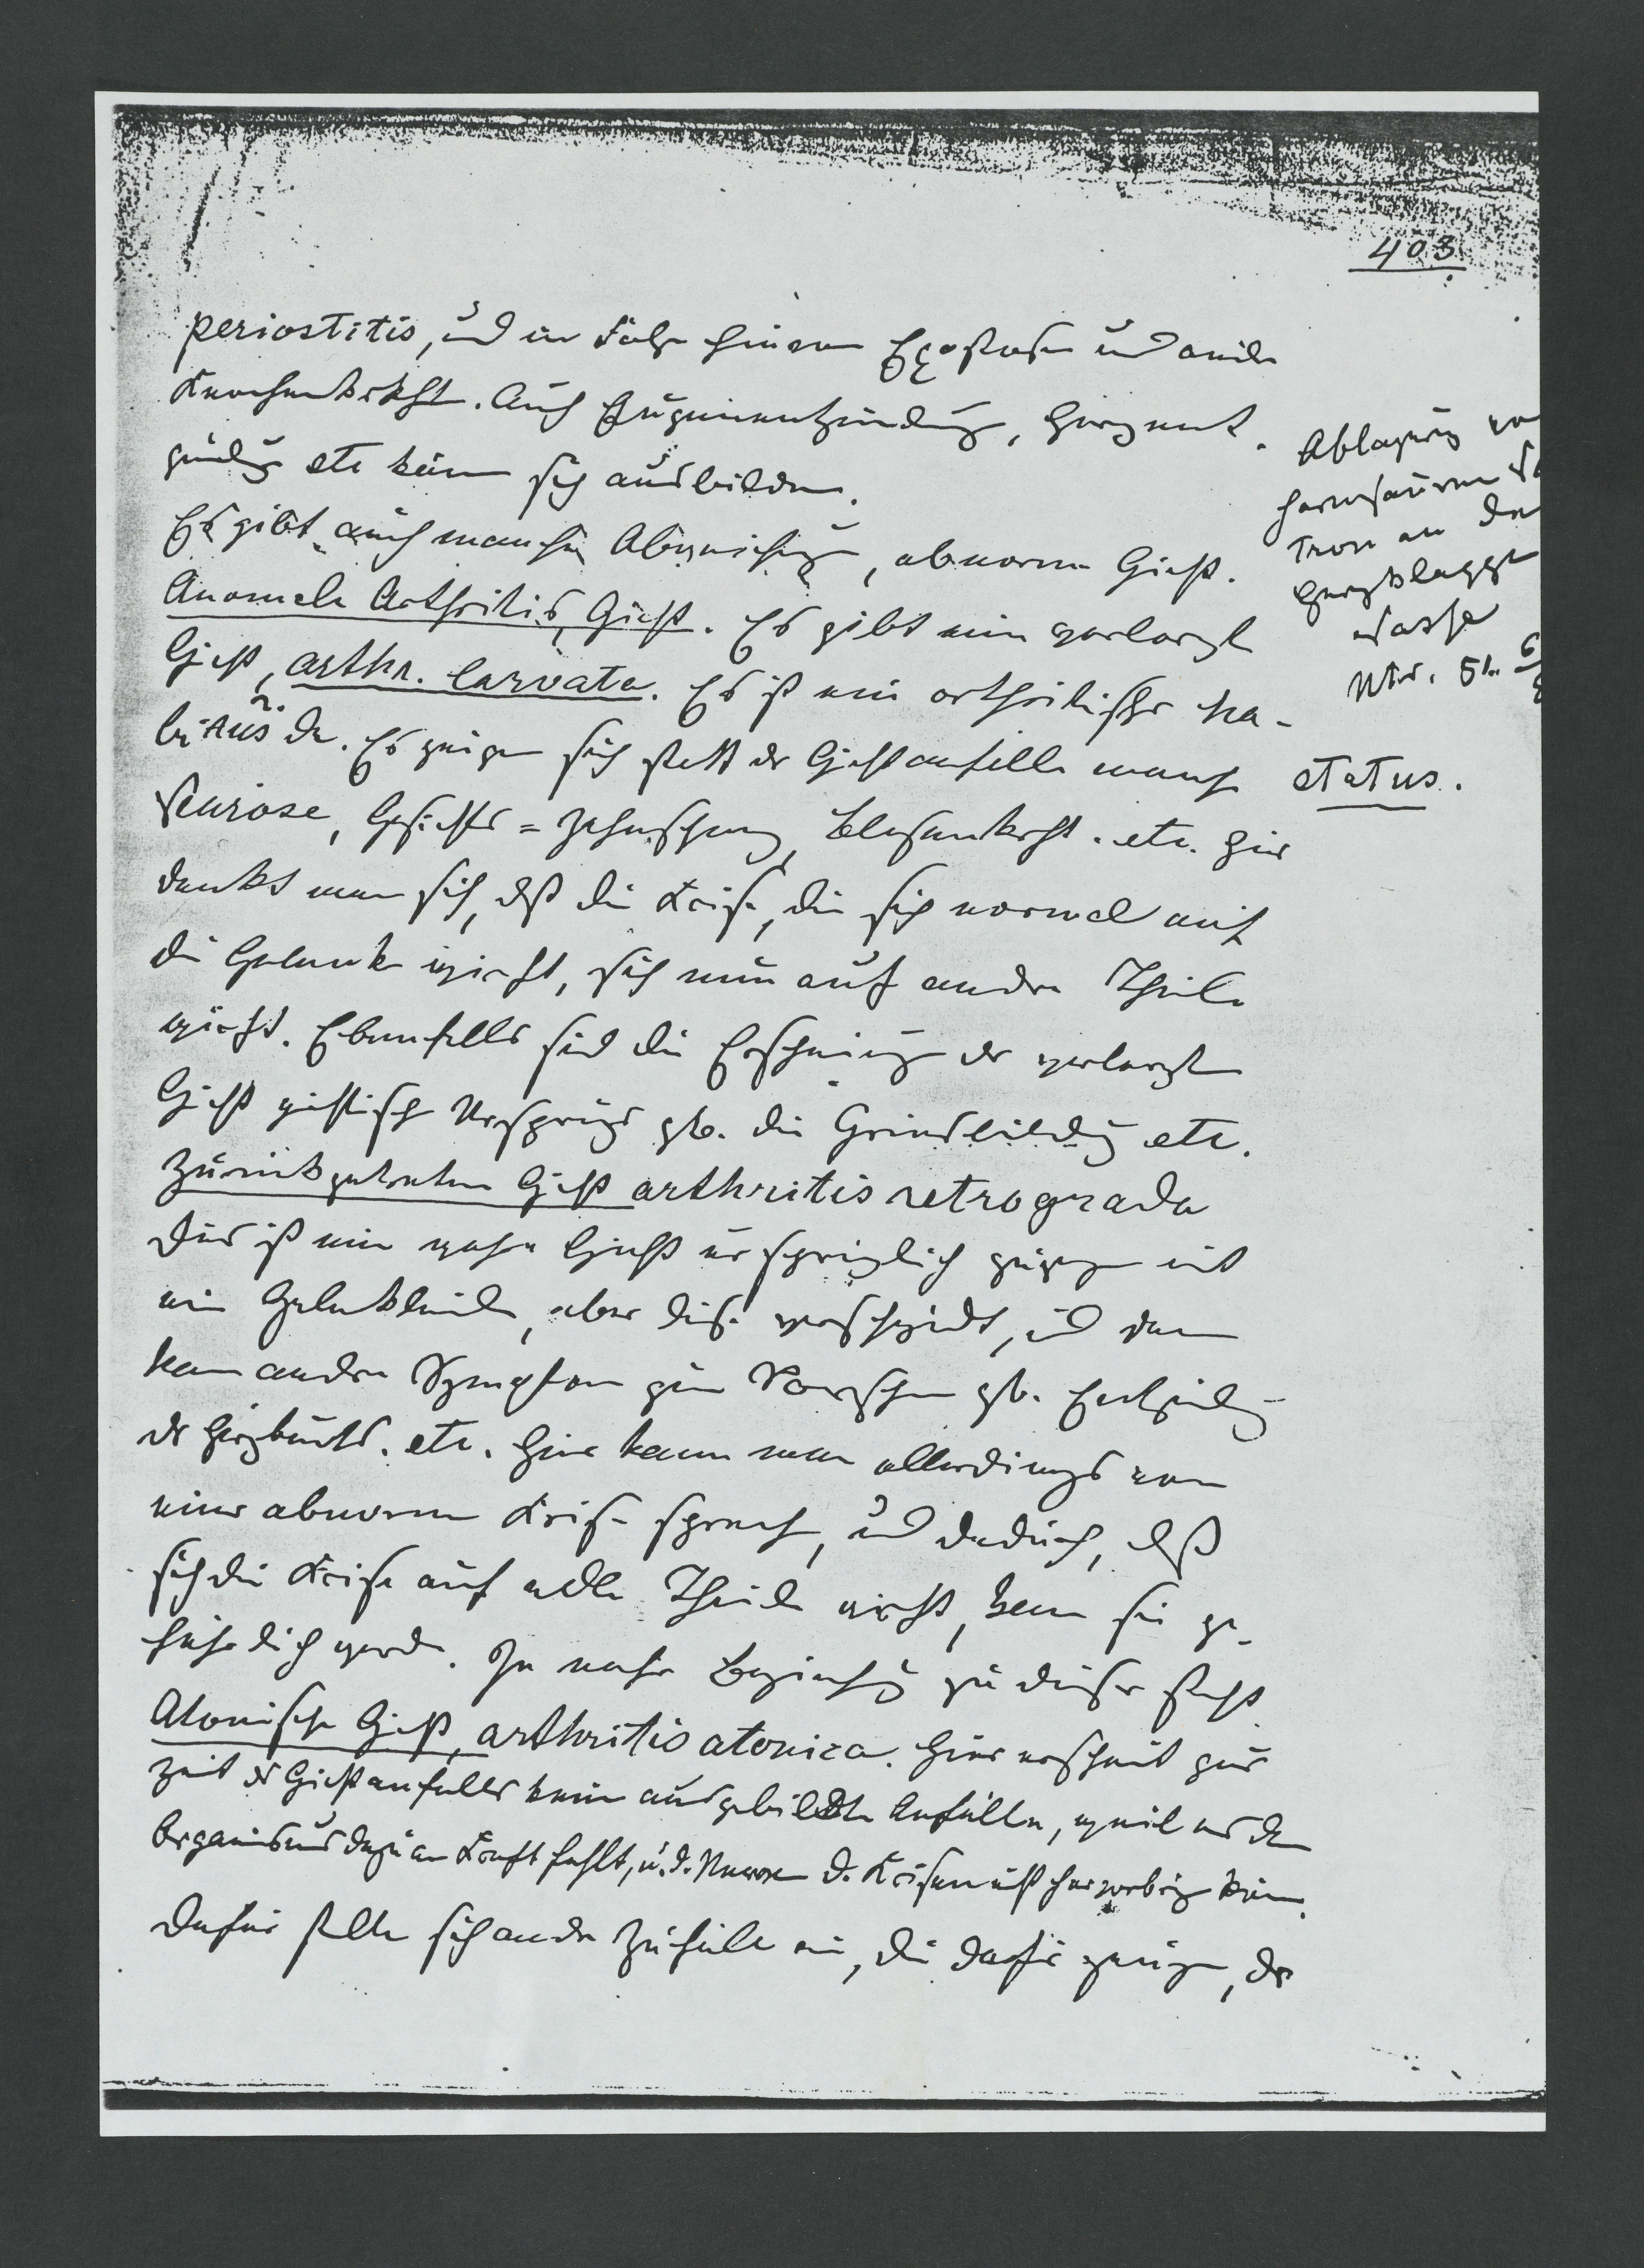 403
periostitis, und in Folge hievon Exostosen und andre
Knochenkrkht. Auch Augenentzündung, Herzent-
zündg etc könn sich ausbilden.
Es gibt auch manche Abweichung, abnorme Gicht.
Anomale Arthritis, Gicht. Es gibt eine verlarvte
Gicht, arthr. larvata. Es ist ein arthritischer ha-
bitus da. Es zeigen sich statt der Gichtanfälle manch
Neurose, Gesichts- Zahnschmerz, Blasenkrkht. etc. Hier
denkt man sich, dß die Krise, die sich normal auf
die Gelenke wirft, sich nun auf andre Theile
wirft. Ebenfalls sind die Erscheinung der verlarvten
Gicht gichtisch Ursprungs zB. die Griesbildung etc.
Zurückgetretene Gicht arthritis retrograda
Dies ist eine wahre Gicht ursprünglich gewesen mit
ein Gelenkleide, aber diese verschwindet, und dann
kom andre Symptom zum Vorschein zB. Entzündg
der Herzbeutels. etc. Hier kann man allerdings von
einer abnormen Krise sprech, und dadurch, dß
sich die Krise auf edle Theile wirft, kann sie ge-
fährlich werde. In naher Beziehung zu dieser steht
Atonische Gicht, arthritis atonica. Hier erscheint zur
Zeit des Gichtanfalls kein ausgebildete Anfälle, weil es dem
Organismus dazu an Kraft fehlt, u. d. Nerven d. Krisen nicht hervorbring könn.
Dafür stelle sich andre Zufälle ein, die dafür zeugen, dß
Ablagerung vo
harnsauren
tron an den
Herzklappen
status.